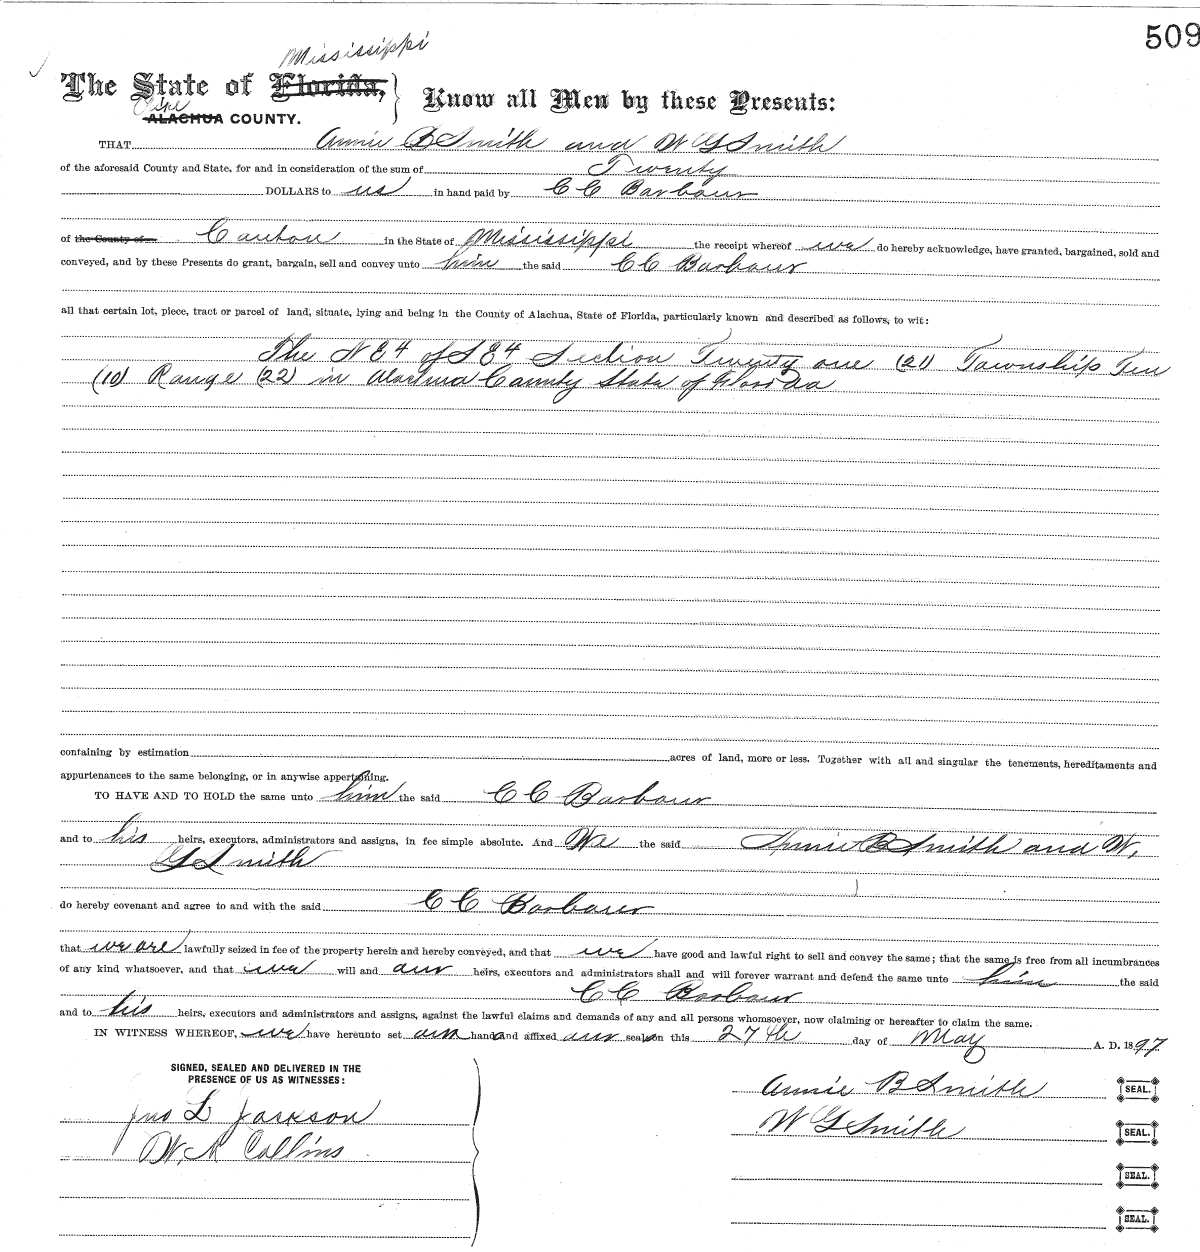 509
Mississippi
The State of Florida,
Pike
ALACHUA COUNTY.
Know all Men by these Presents:
THAT Annie B Smith and W G Smith
of the aforesaid County and State, for and in consideration of the sum of Twenty
DOLLARS to us in hand paid by C C Barbour
of the County of Canton in the State of Mississippi the receipt whereof we do hereby acknowledge, have granted, bargained, sold and
conveyed, and by these Presents do grant, bargain, sell and convey unto him the said C C Barbour
all that certain lot, piece, tract or parcel of land, situate, lying and being in the County of Alachua, State of Florida, particularly known and described as follows, to wit:
The N E 4 of S E 4 Section Twenty one (21) Township Ten
(10) Range (22) in Alachua County State of Florida
containing by estimation acres of land, more or less. Together with all and singular the tenements, hereditaments and
appurtenances to the same belonging, or in anywise appertaining.
TO HAVE AND TO HOLD the same unto him the said C C Barbour
and to his heirs, executors, administrators and assigns, in fee simple absolute. And We the said Annie B Smith and W,
G Smith
do hereby covenant and agree to and with the said C C Barbour
that we are lawfully seized in fee of the property herein and hereby conveyed, and that we have good and lawful right to sell and convey the same; that the same is free from all incumbrances
of any kind whatsoever, and that we will and our heirs, executors and administrators shall and will forever warrant and defend the same unto him the said
C C Barbour
and to his heirs, executors and administrators and assigns, against the lawful claims and demands of any and all persons whomsoever, now claiming or hereafter to claim the same.
IN WITNESS WHEREOF, we have hereunto set our hands and affixed our seals on this 27th day of May A. D. 1897
SIGNED, SEALED AND DELIVERED IN THE
PRESENCE OF US AS WITNESSES:
Jno L Jackson
W. Collins
Annie B Smith SEAL.
W G Smith SEAL.
SEAL.
SEAL.